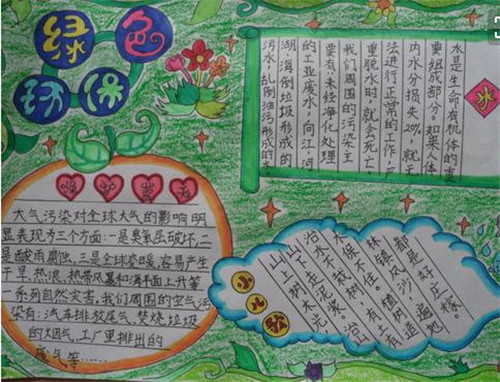 绿色
环保
水
水是生命有机体的重
要组成部分。如果人体
内水分损失20%,就无
法进行正常的工作,严
重脱水时,就会死亡。
我们周围的污染主
要有:未经净化处理
的工业废水,向江河
湖、海倒垃圾形成的
污水,乱倒油污形成的
大气污染对全球大气的影响明
显表现为三个方面:一是臭氧层破坏,二
是酸雨腐蚀,三是全球变暖,容易产生
干旱、热浪、热带风暴和海平面上升等
一系列自然灾害,我们周围的空气污
染有:汽车排放尾气、焚烧垃圾
的烟气,工厂里排出的
废气等……
小儿歌
山上树木光
山下走泥浆。
治水不栽树
水保不住。
林镇风沙
遍地
都是好庄稼。